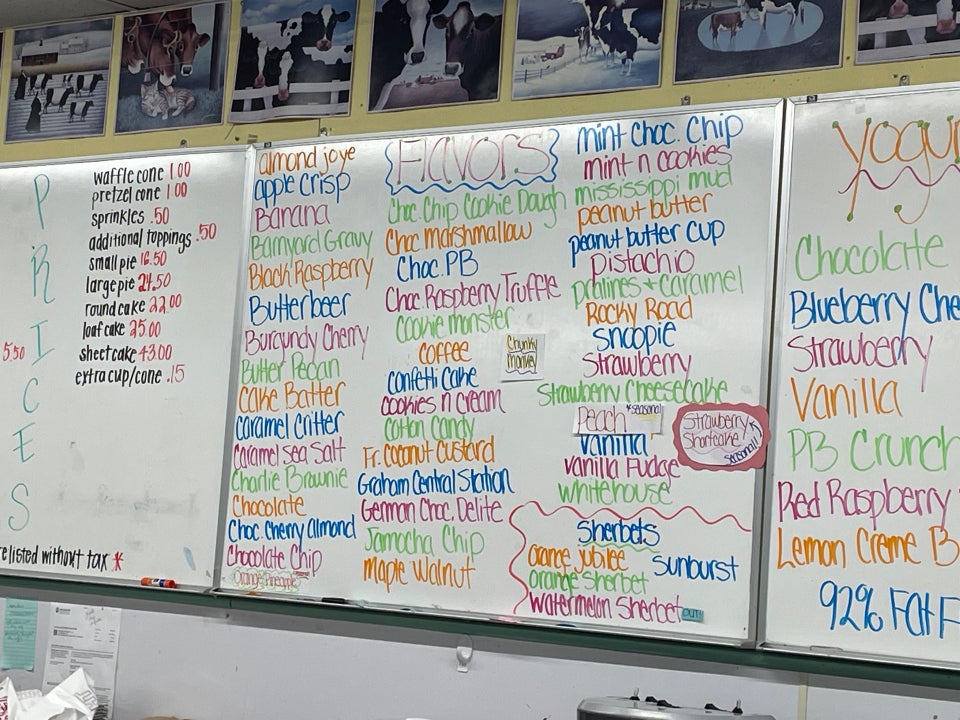 PRICES
waffle cone 1.00
pretzel cone 1.00
sprinkles .50
additional toppings .50
small pie 16.50
large pie 24.50
round cake 22.00
loaf cake 25.00
sheet cake 43.00
extra cup/cone .15
5.50
listed without tax *
Flavors
almond joye
apple crisp
Banana
Barnyard Gravy
Black Raspberry
Butterbeer
Burgundy Cherry
Butter Pecan
Cake Batter
Caramel Critter
Caramel Sea Salt
Charlie Brownie
Chocolate
Choc. Cherry Almond
Chocolate Chip
Orange Pineapple
Choc. Chip Cookie Dough
Choc Marshmallow
Choc. PB
Choc Raspberry Truffle
Cookie monster
coffee
Chunky
Monkey
Confetti Cake
Cookies n Cream
Cotton Candy
Fr. Coconut Custard
Graham Central Station
German Choc. Delite
Jamocha Chip
Maple Walnut
mint Choc. Chip
mint n cookies
mississippi mud
peanut butter
peanut butter cup
Pistachio
pralines + Caramel
Rocky Road
Snoopie
Strawberry
Strawberry Cheesecake
Peach *seasonal
Strawberry
Shortcake!
seasonal!
Vanilla
Vanilla Fudge
whitehouse
Sherbets
Orange Jubilee
Sunburst
Orange Sherbet
Watermelon Sherbet OUT!
Chocolate
Strawberry
Vanilla
PB Crunch
Red Raspberry
Lemon Creme
92% Fat